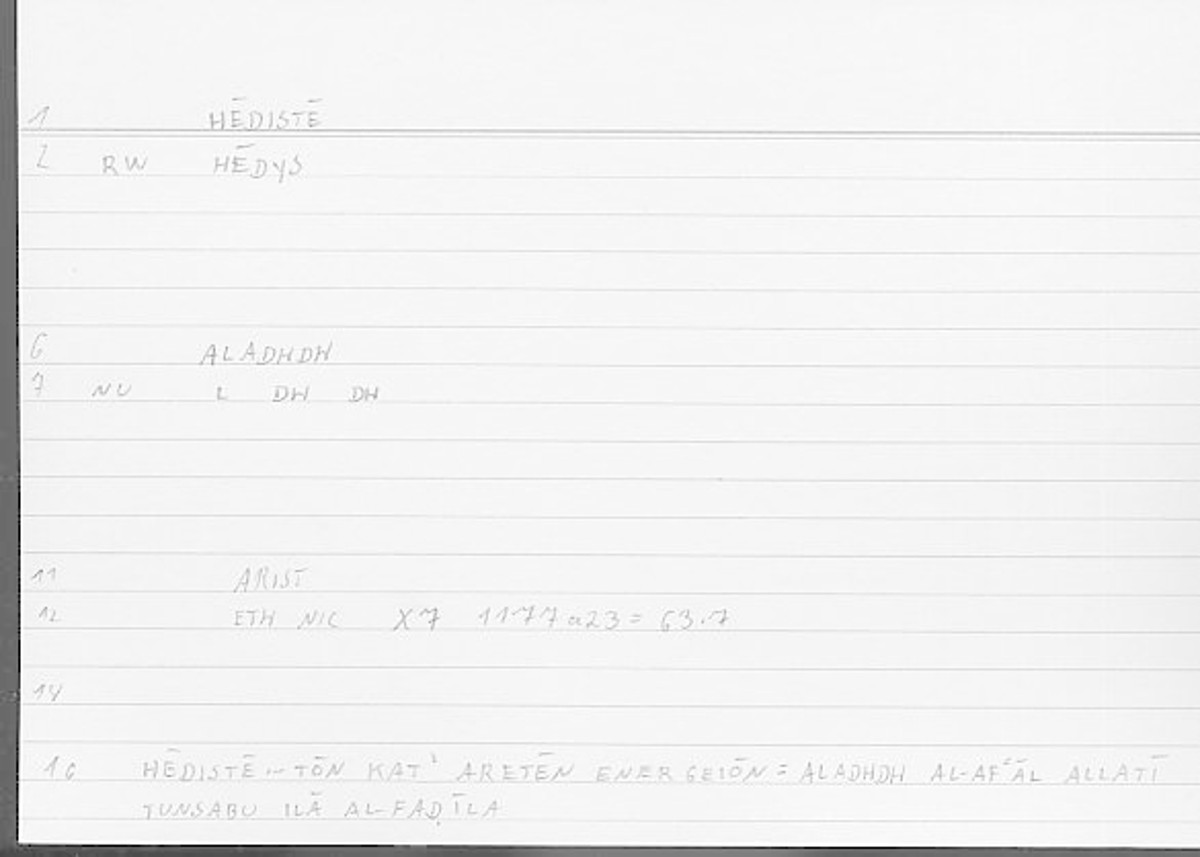 1 HĒDISTĒ
2 RW HĒDYS
6 ALADHDH
7 NU L DH DH
11 ARIST
12 ETH NIC X7 1177a23 = 63.7
14
16 HĒDISTĒ... TŌN KAT' ARETĒN ENERGEIŌN = ALADHDH AL-AFʿĀL ALLATĪ
TUNSABU ILĀ AL-FAḌĪLA